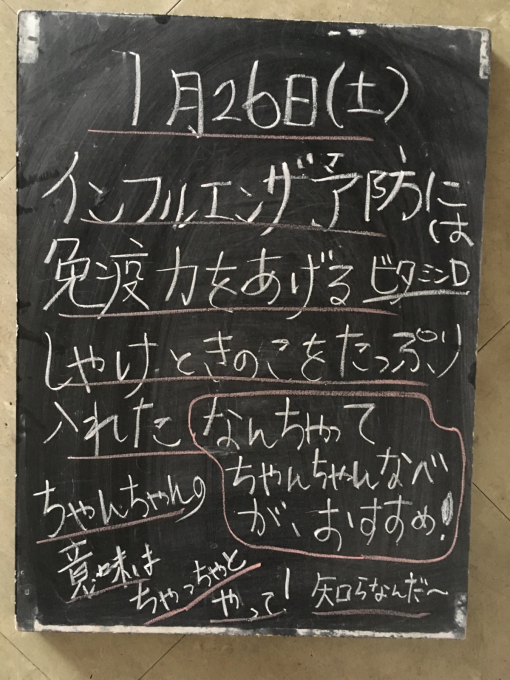 1月26日(土)
インフルエンザ予防には
免疫力をあげるビタミンD
しゃけときのこをたっぷり
入れたなんちゃって
ちゃんちゃんなべ
が、おすすめ!
ちゃんちゃんの
意味は
ちゃっちゃと
やって!
知らなんだ〜